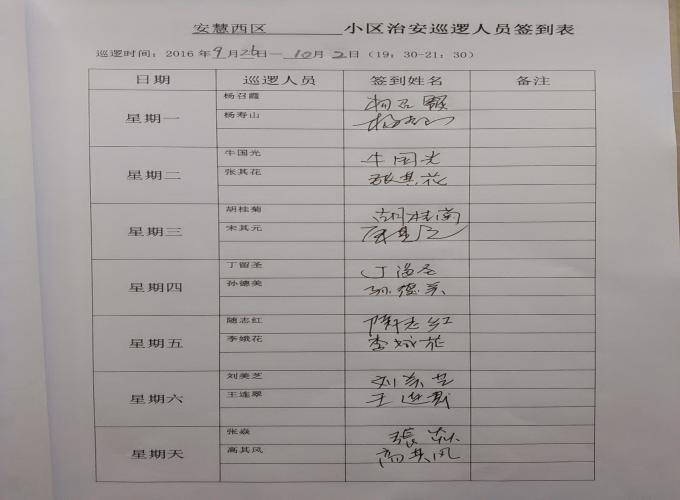 安慧西区 小区治安巡逻人员签到表
巡逻时间:2016年9月26日—10月2日(19:30-21:30)
日期 巡逻人员 签到姓名 备注
星期一
杨召霞 杨召霞
杨寿山 杨寿山
星期二
牛国光 牛国光
张其花 张其花
星期三
胡桂菊 胡桂菊
宋其元
星期四
丁留圣 丁留圣
孙德美 孙德美
星期五
随志红 隋志红
李娥花 李娥花
星期六
刘美芝 刘美芝
王连翠 王连翠
星期天
张焱 張焱
高其凤 高其凤